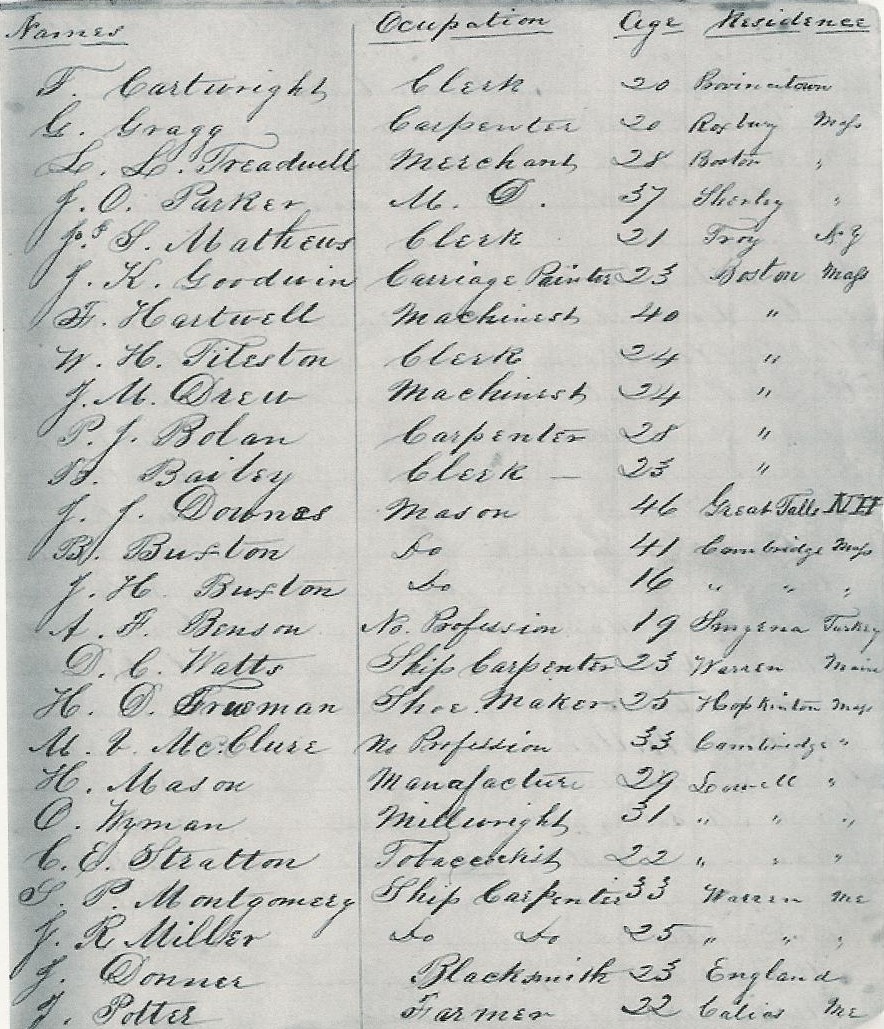 Names Ocupation Age Residence
F. Cartwright Clerk 20
G. Gragg Carpenter 20 Roxbury Mass
L. L. Treadwell Merchant 28 Boston "
J. O. Parker M. D. 37 Sherley "
Js. S. Mathews Clerk 21 Troy N Y
J. K. Goodwin Carriage Painter 23 Boston Mass
F. Hartwell Machinest 40 "
W. H. Tileston Clerk 24 "
J. M. Drew Machinest 24 "
P. J. Bolan Carpenter 28 "
B. Bailey Clerk — 23 "
J. J. Downes Mason 46 Great Falls NH
B. Buxton Do 41 Cambridge Mass
J. H. Buxton Do 16 " " "
A. F. Benson No. Profession 19 Smyrna Turkey
D. C. Watts Ship Carpenter 23 Warren Main
H. D. Freeman Shoe Maker 25 Hopkinton Mass
M. V. Mc.Clure No Profession 33 Cambridge "
H. Mason Manufacture 29 Lowell "
O. Wyman Millwright 31 " " "
C. E. Stratton 22 " " "
S. P. Montgomery Ship Carpenter 33 Warren Me
J. R Miller Do Do 25 " " "
J. Donner Blacksmith 23 England
J. Potter Farmer 22 Calias Me